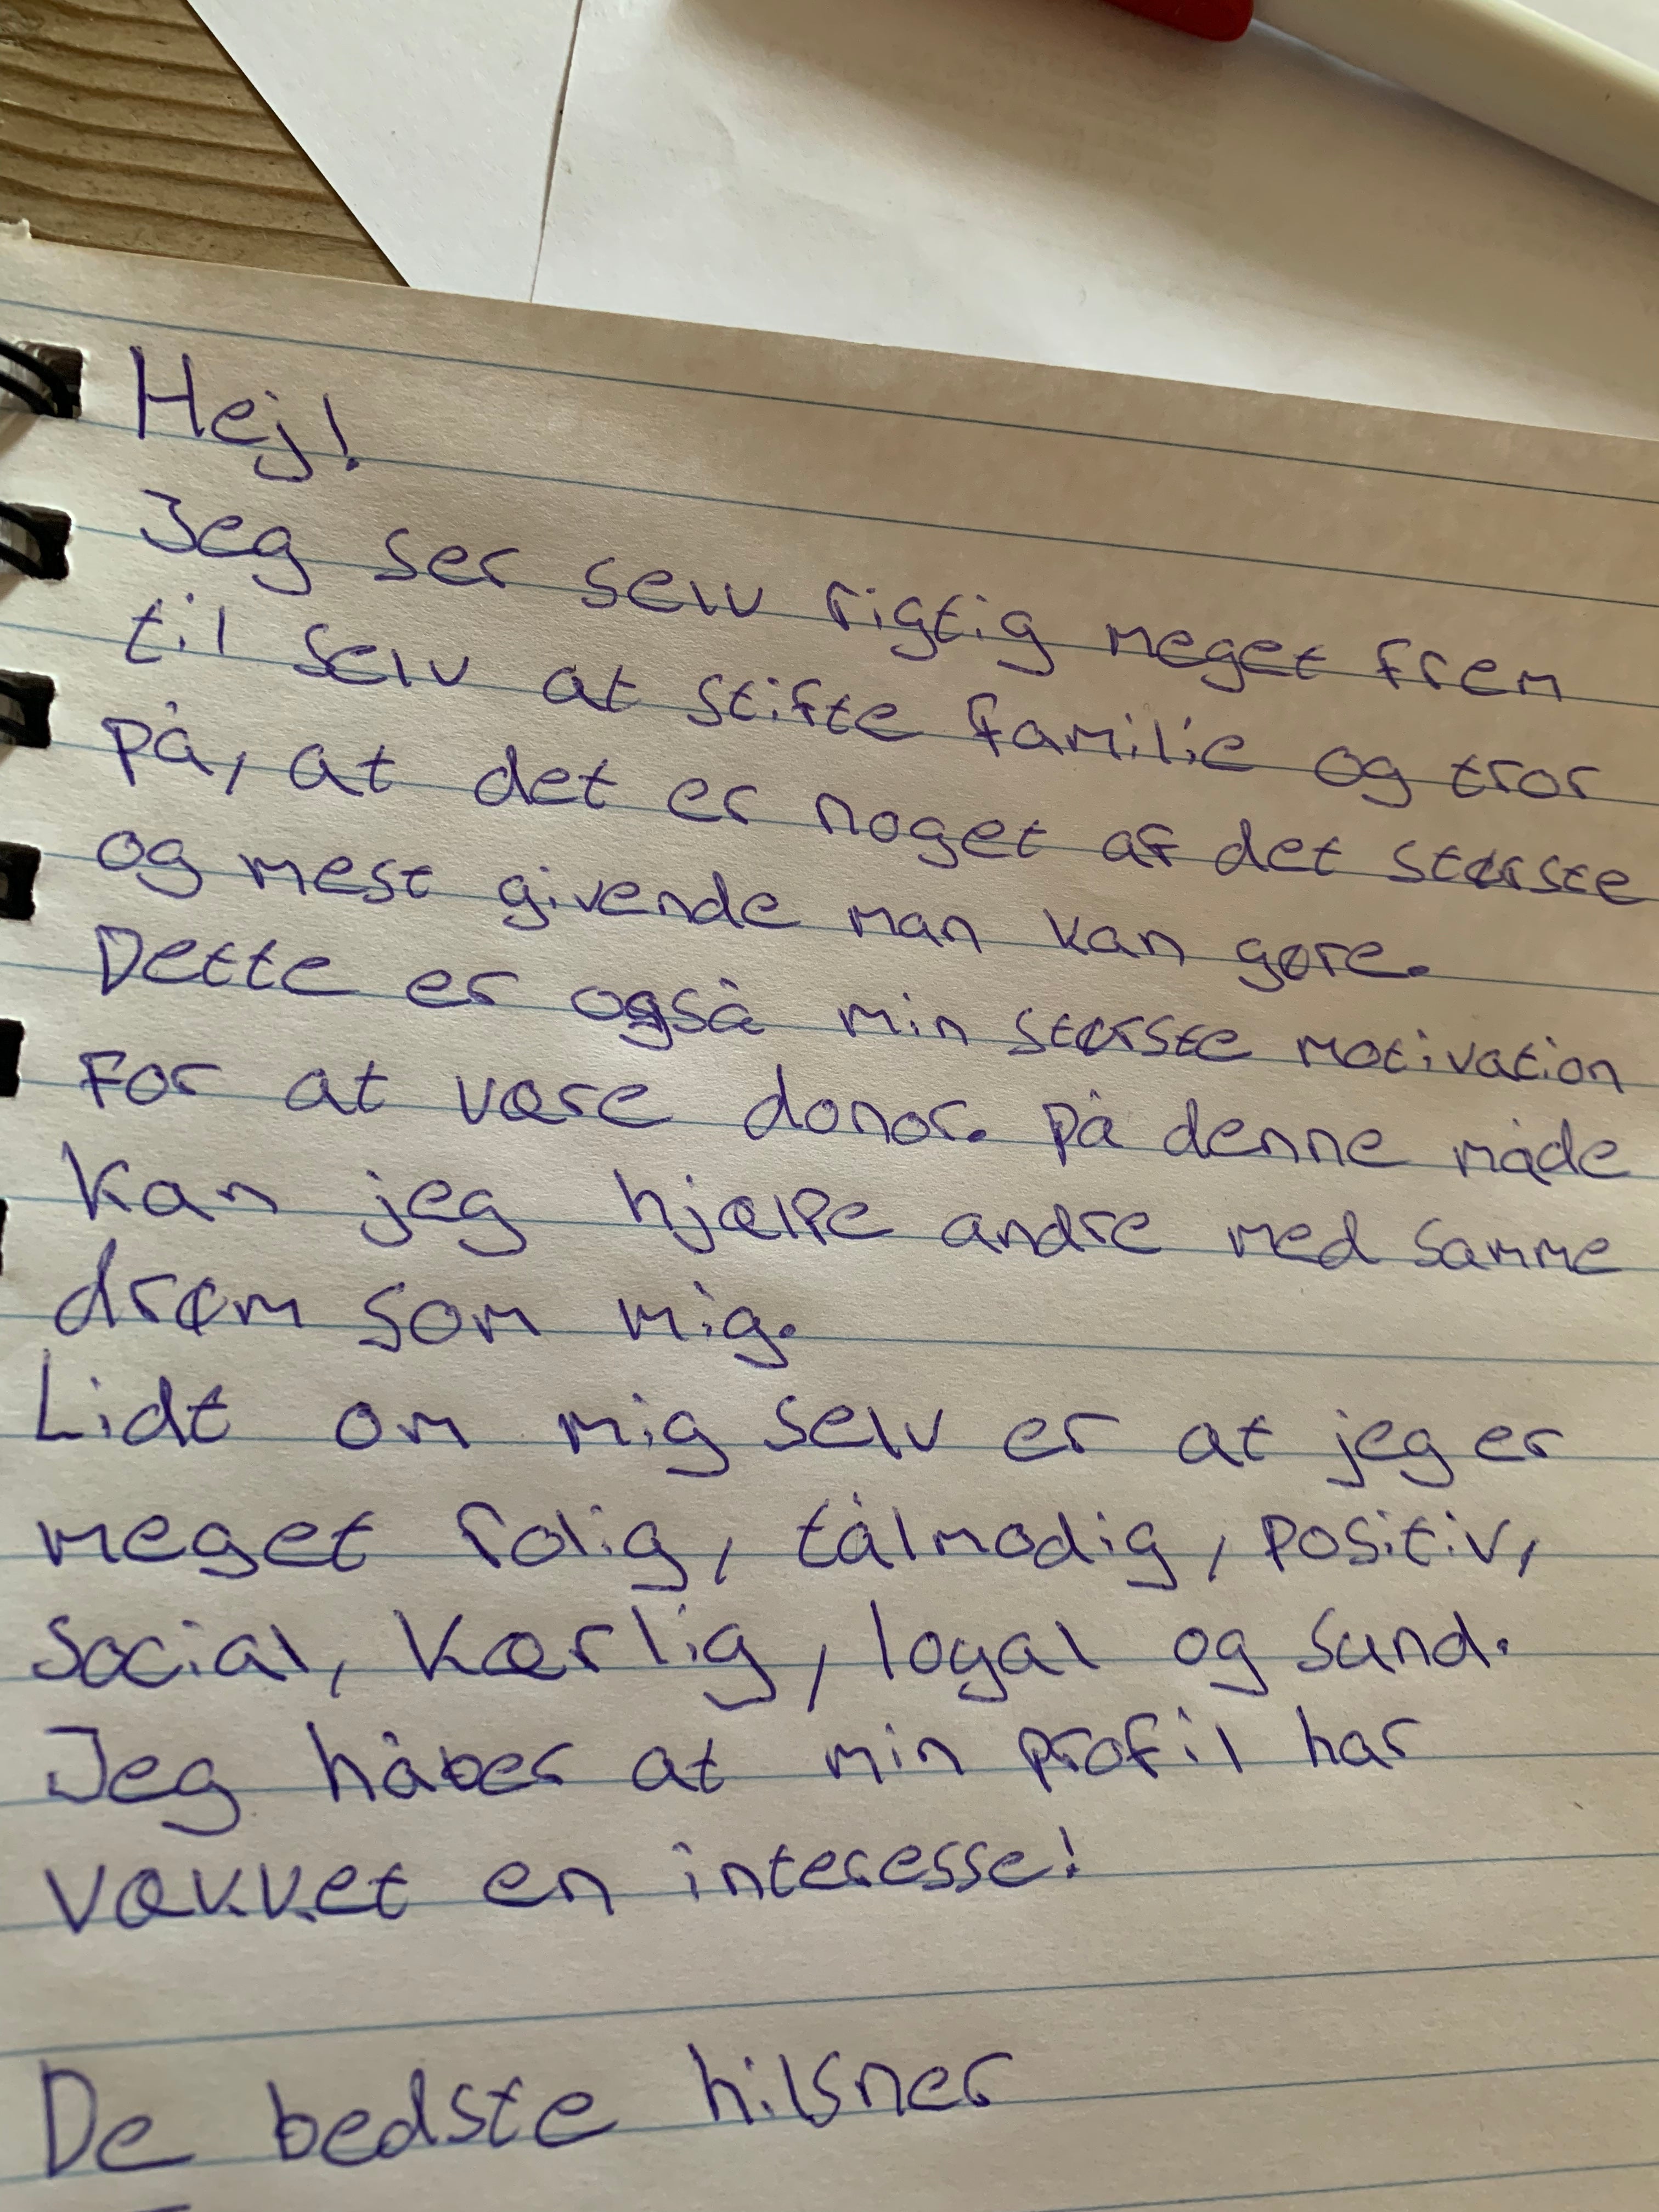 Hej!
Jeg ser selv rigtig meget frem
til selv at stifte familie og tror
på, at det er noget af det største
og mest givende man kan gøre.
Dette er også min største motivation
For at være donor. På denne måde
kan jeg hjælpe andre med samme
drøm som mig.
Lidt om mig selv er at jeg er
meget rolig, tålmodig, positiv,
social, kærlig, loyal og sund.
Jeg håber at min profil har
vækket en interesse!
De bedste hilsner